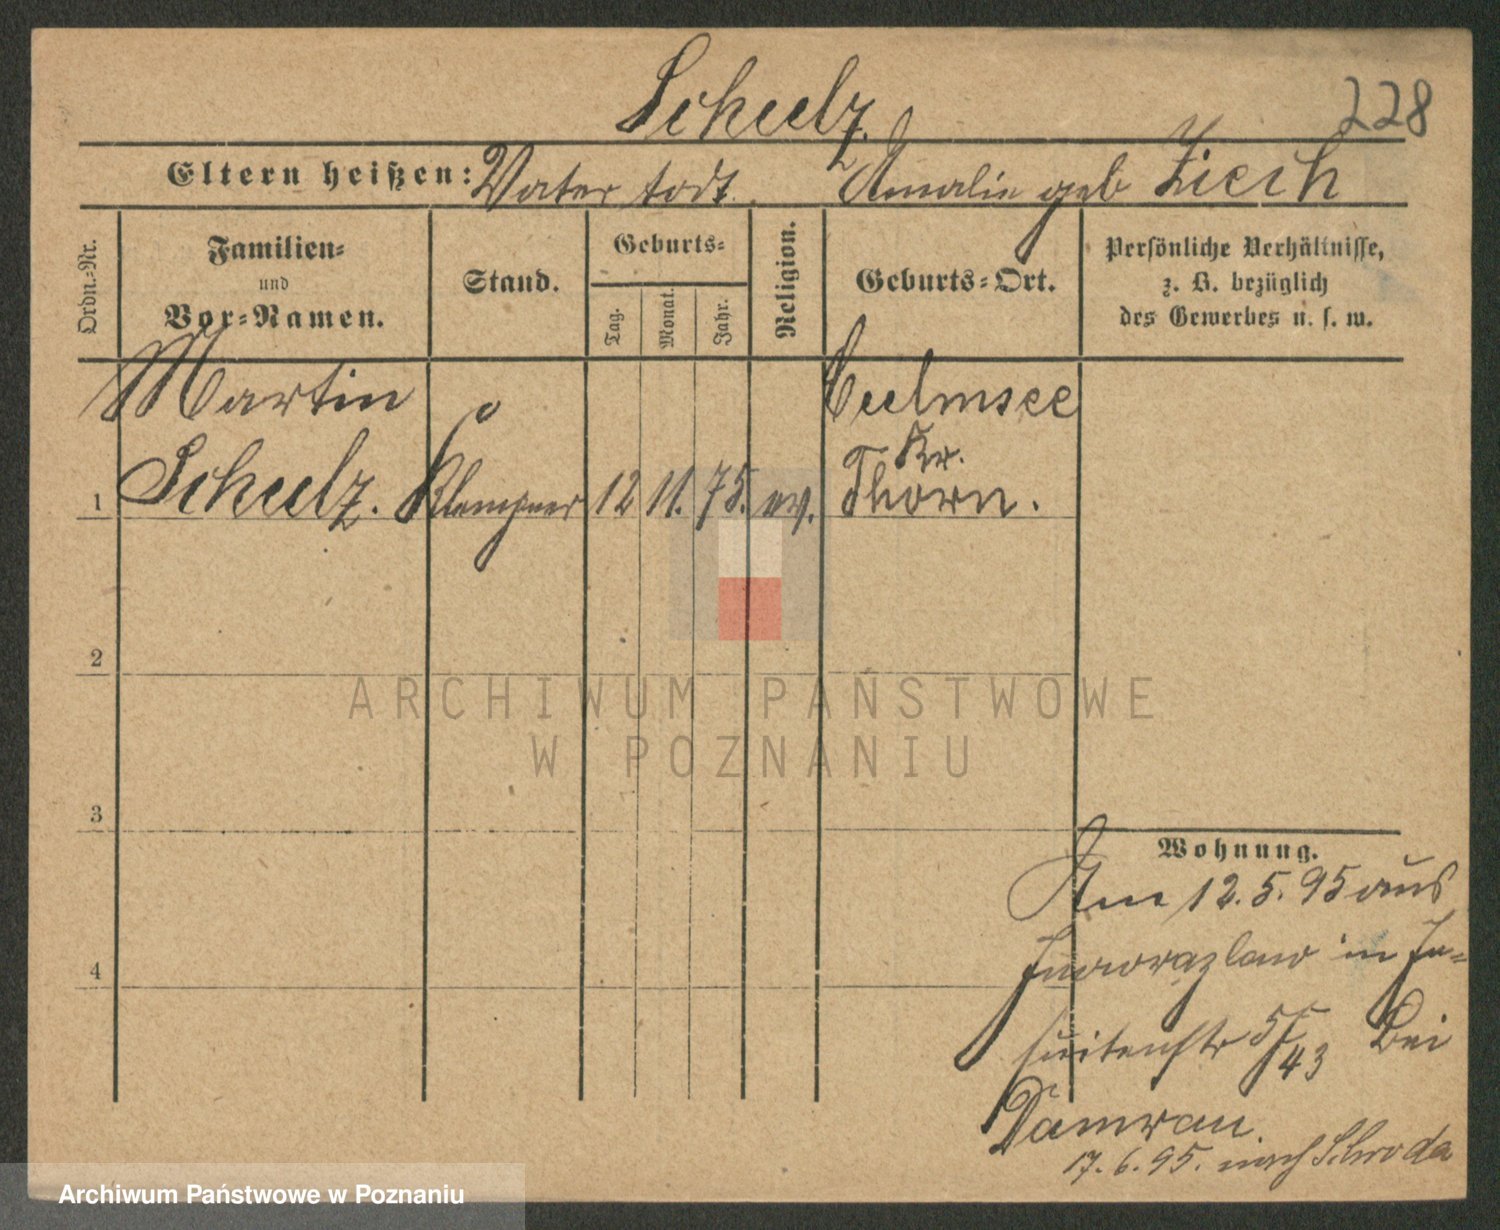 Schulz.
228
Eltern heißen: Vater todt. Amalie geb Ziech
Ordn.-Nr.
Familien-
und
Vor-Namen.
Stand.
Geburts-
Tag.
Monat.
Jahr.
Religion.
Geburts-Ort.
Persönliche Verhältnisse,
z. B. bezüglich
des Gewerbes u. s. w.
Martin
Schulz.
1
Klempner
12
11.
75.
ev.
Culmsee
Kr.
Thorn.
2
3
4
Wohnung.
Am 12.5.95 aus
Inowrazlaw in Je-
suitenstr 5/43 bei
Damrau.
17.6.95. nach Schroda
ARCHIWUM PAŃSTWOWE
W POZNANIU
Archiwum Państwowe w Poznaniu